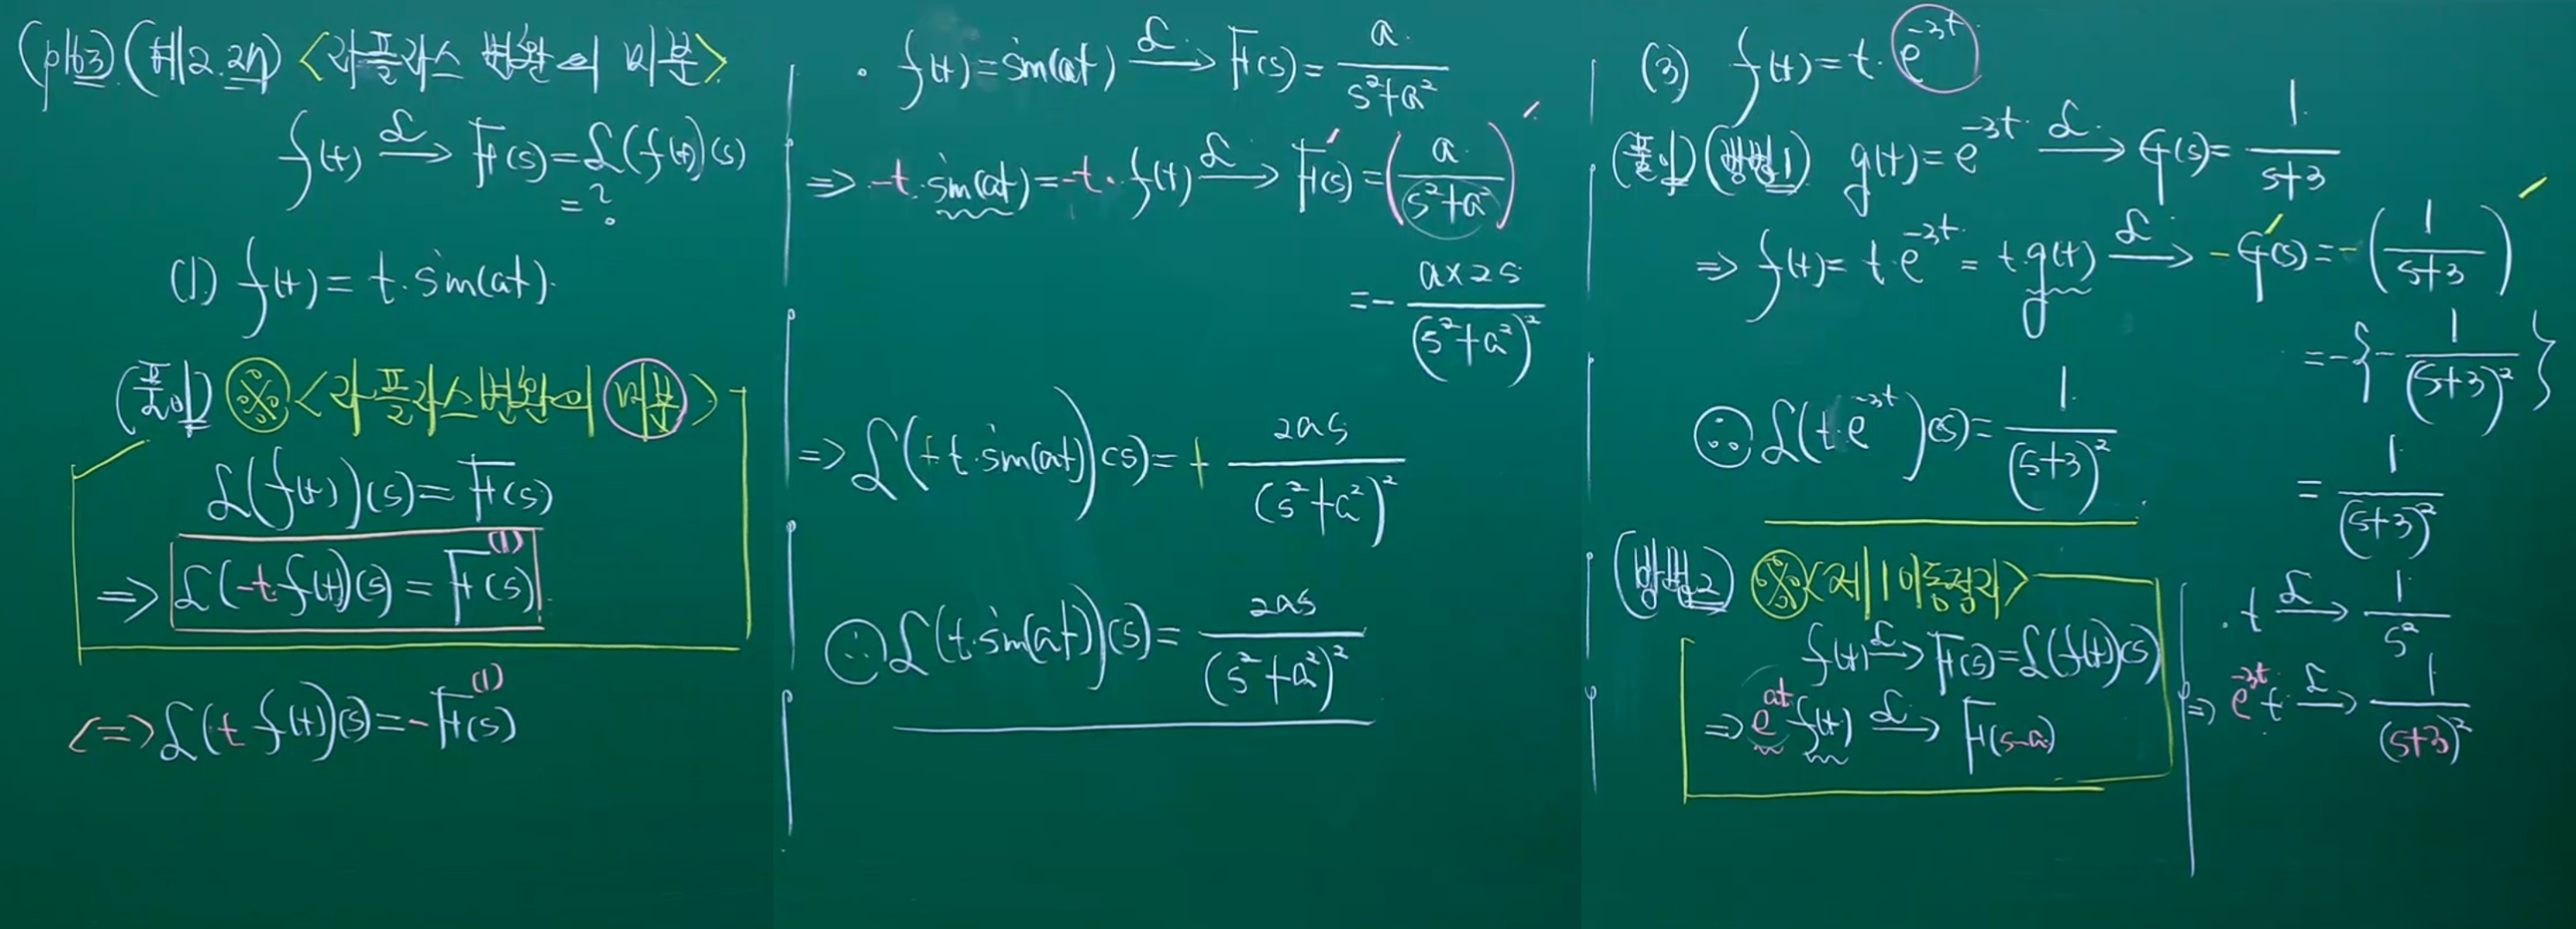 (p163) (예2.27) <라플라스 변환의 미분>
f(t) ℒ→ F(s) = ℒ(f(t))(s)
= ?
(1) f(t) = t·sin(at).
(풀이) ※ <라플라스 변환의 미분>
ℒ(f(t))(s) = F(s)
⇒ ℒ(-t·f(t))(s) = F⁽¹⁾(s)
⟨=⟩ ℒ(t f(t))(s) = -F⁽¹⁾(s)
· f(t) = sin(at) ℒ→ F(s) = a/(s²+a²)
⇒ -t·sin(at) = -t·f(t) ℒ→ F'(s) = (a/(s²+a²))'
= - (a×2s)/(s²+a²)²
⇒ ℒ(+t·sin(at))(s) = + 2as/(s²+a²)²
∴ ℒ(t·sin(at))(s) = 2as/(s²+a²)²
(3) f(t) = t·e⁻³ᵗ
(풀이) (방법1) g(t) = e⁻³ᵗ ℒ→ G(s) = 1/(s+3)
⇒ f(t) = t·e⁻³ᵗ = t·g(t) ℒ→ -G'(s) = -(1/(s+3))'
= -{-1/(s+3)²}
= 1/(s+3)²
∴ ℒ(t·e⁻³ᵗ)(s) = 1/(s+3)²
(방법2) ※ <제1이동정리>
f(t) ℒ→ F(s) = ℒ(f(t))(s)
⇒ eᵃᵗ f(t) ℒ→ F(s-a)
· t ℒ→ 1/s²
⇒ e⁻³ᵗ t ℒ→ 1/(s+3)²